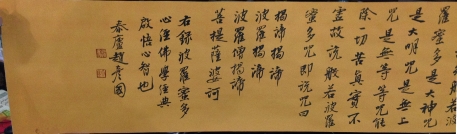 般若波
羅蜜多是大神咒
是大明咒是無上
咒是無等等咒能
除一切苦真實不
虛故說般若波羅
蜜多咒即說咒曰
揭諦揭諦
波羅揭諦
波羅僧揭諦
菩提薩婆訶
右錄波羅蜜多
心經佛學經典
啟悟心智也
廬趙彥國